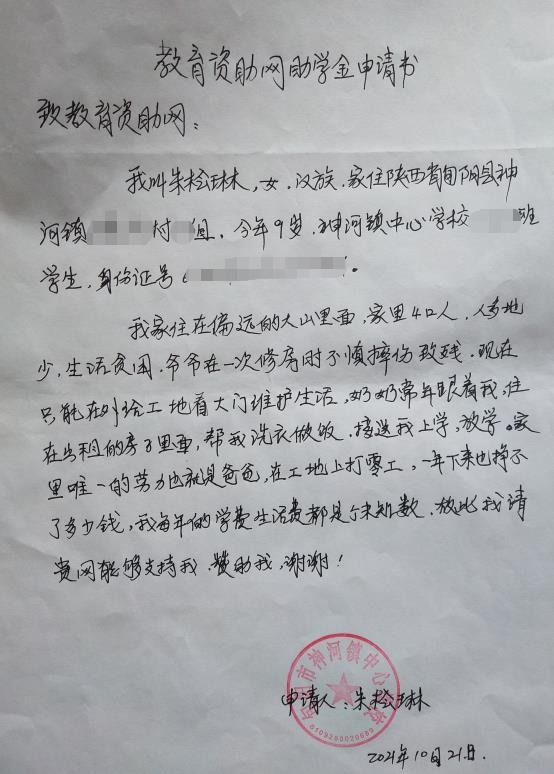 教育资助网助学金申请书
致教育资助网：
我叫朱松琳，女，汉族，家住陕西省旬阳县神
河镇 村 组，今年9岁，神河镇中心学校 班
学生，身份证号 。
我家住在偏远的大山里面，家里4口人，人多地
少，生活贫困，爷爷在一次修房时不慎摔伤致残，现在
只能在外给工地看大门维护生活，奶奶常年跟着我，住
在出租的房子里面，帮我洗衣做饭，接送我上学，放学。家
里唯一的劳力也就是爸爸，在工地上打零工，一年下来也挣不
了多少钱，我每年的学费生活费都是个未知数，故此我请
贵网能够支持我，赞助我，谢谢！
旬阳市神河镇中心学校
6109280020689
申请人：朱松琳
2021年10月21日.